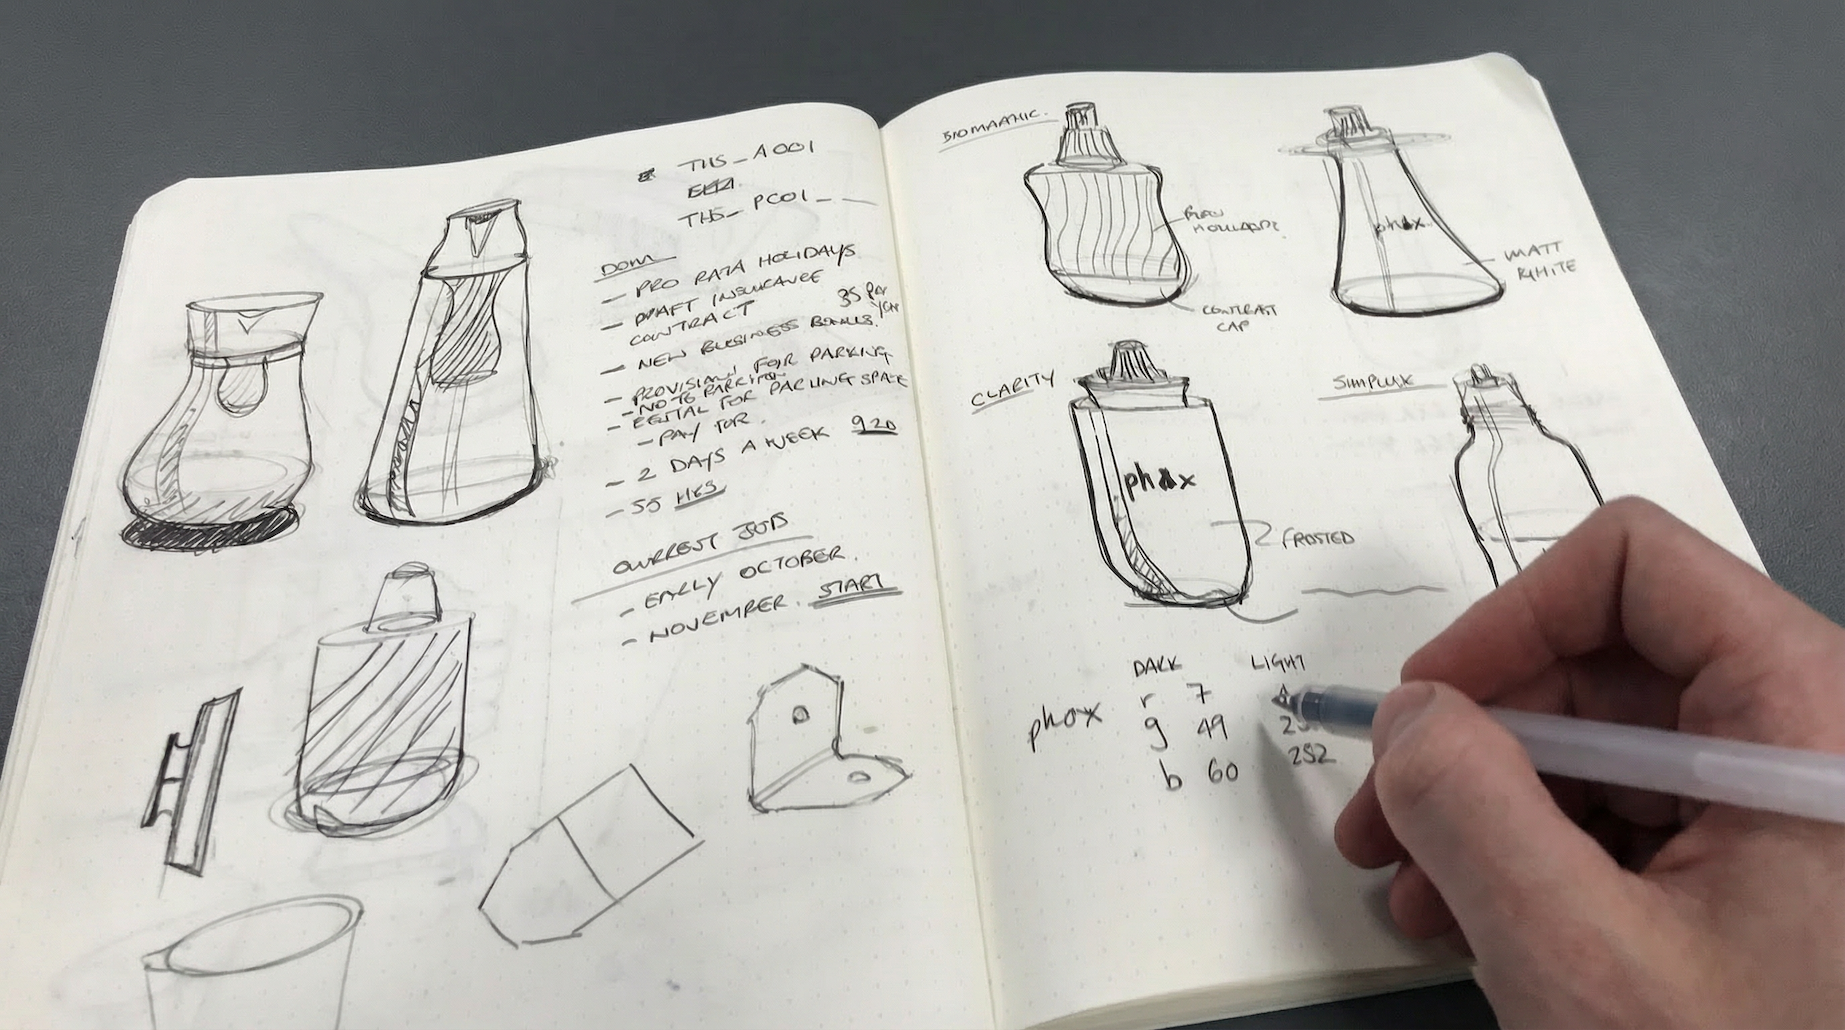 THS_A001
THS_PC01_ _
DOM
- PRO RATA HOLIDAYS
- DRAFT INSURANCE
CONTRACT
- NEW BUSINESS BONUS. 35 PER YEAR
- PROVISION FOR PARKING
- NO TO PARKING
- RENTAL FOR PARKING SPACE
- PAY FOR.
- 2 DAYS A WEEK 920
- 55 HRS
CURRENT JOBS
- EARLY OCTOBER.
- NOVEMBER. START
phox.
MATT
WHITE
CONTRAST
CAP
CLARITY
SIMPLUX
phox
FROSTED
DARK LIGHT
phox
r 7
g 49
b 60 252